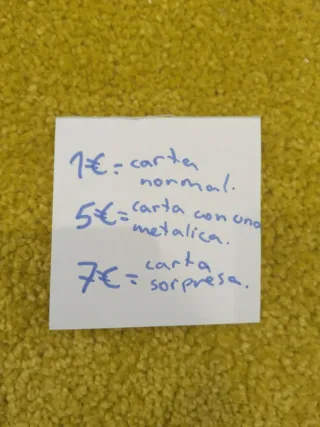 1€ = carta
normal.
5€ = carta con una
metalica.
7€ = carta
sorpresa.